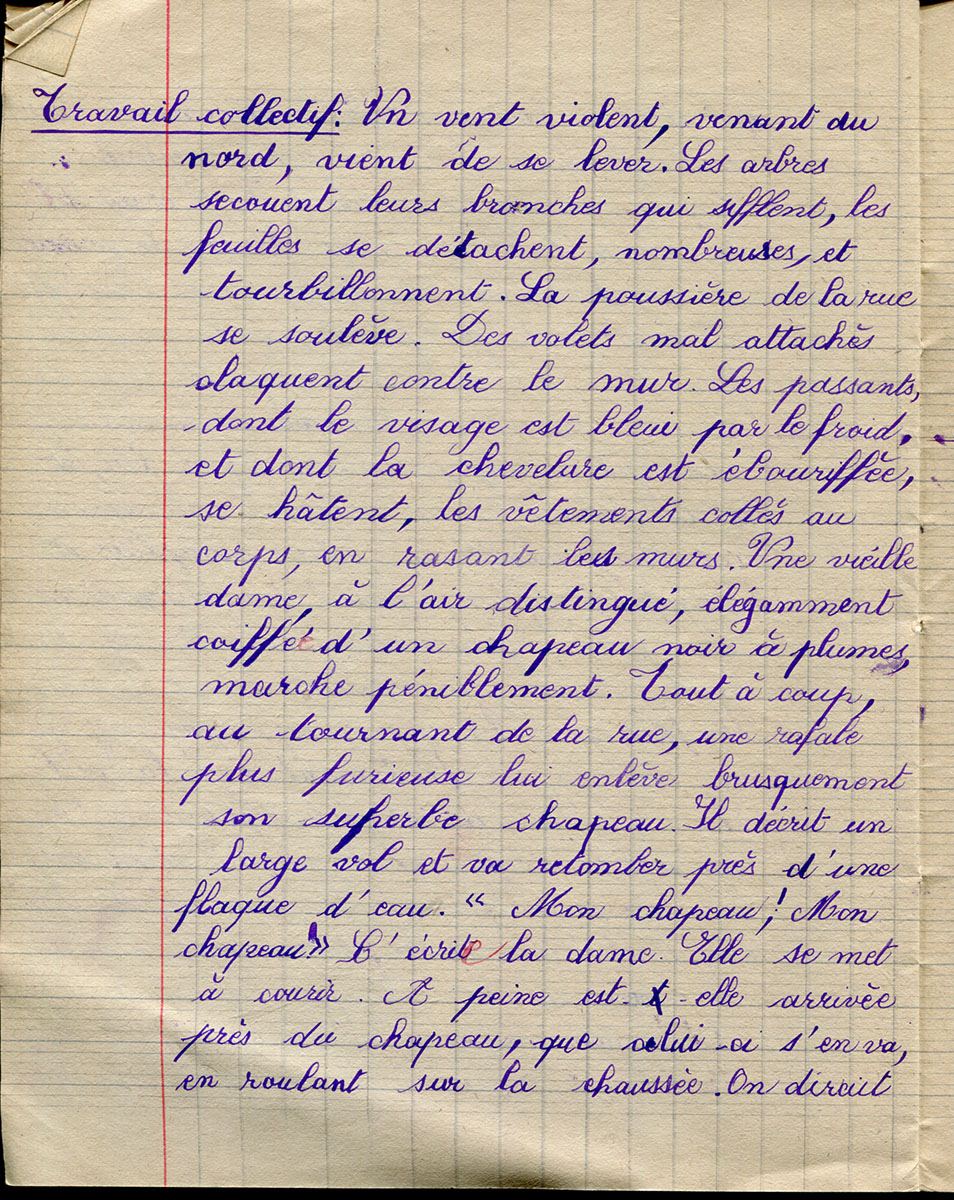 Travail collectif: Un vent violent, venant du
nord, vient de se lever. Les arbres
secouent leurs branches qui sifflent, les
feuilles se détachent, nombreuses, et
tourbillonnent. La poussière de la rue
se soulève. Des volets mal attachés
claquent contre le mur. Les passants,
dont le visage est bleui par le froid,
et dont la chevelure est ébouriffée,
se hâtent, les vêtements collés au
corps, en rasant les murs. Une vieille
dame, à l'air distingué, élégamment
coiffée d'un chapeau noir à plumes,
marche péniblement. Tout à coup,
au tournant de la rue, une rafale
plus furieuse lui enlève brusquement
son superbe chapeau. Il décrit un
large vol et va retomber près d'une
flaque d'eau. « Mon chapeau! Mon
chapeau!» S'écrie la dame. Elle se met
à courir. A peine est-elle arrivée
près du chapeau, que celui-ci s'en va,
en roulant sur la chaussée. On dirait